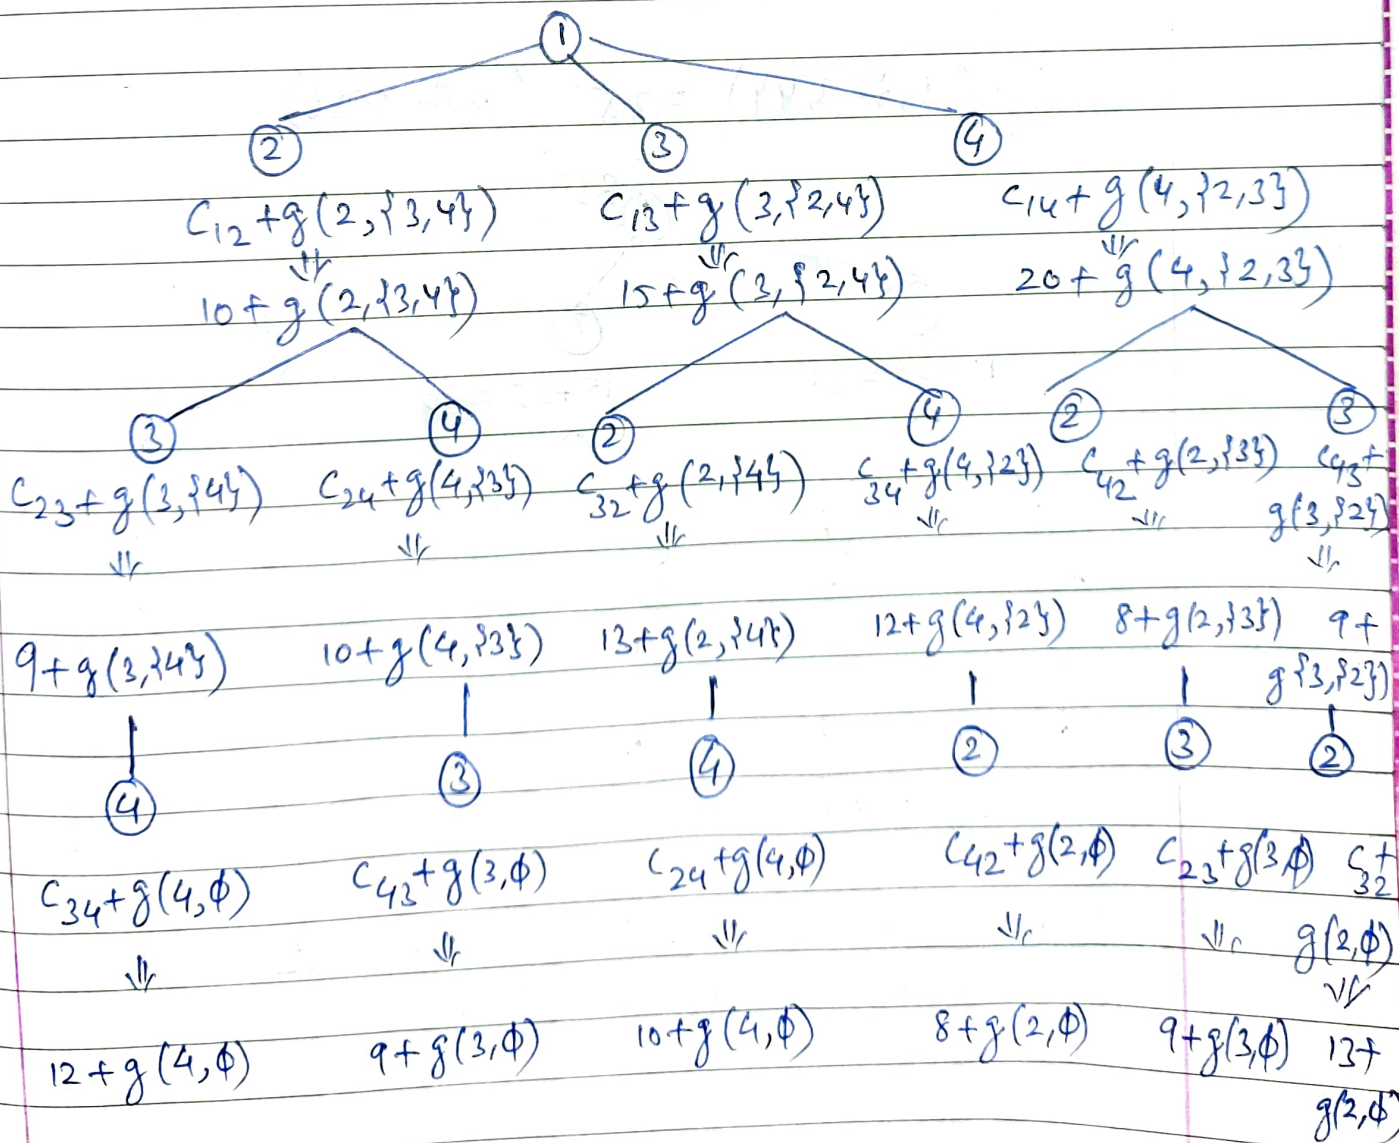 1
2 3 4
C12 + g(2,{3,4}) C13 + g(3,{2,4}) C14 + g(4,{2,3})
⇓ ⇓ ⇓
10 + g(2,{3,4}) 15 + g(3,{2,4}) 20 + g(4,{2,3})
3 4 2 4 2 3
C23 + g(3,{4}) C24 + g(4,{3}) C32 + g(2,{4}) C34 + g(4,{2}) C42 + g(2,{3}) C43 +
g(3,{2})
⇓ ⇓ ⇓ ⇓ ⇓ ⇓
9 + g(3,{4}) 10 + g(4,{3}) 13 + g(2,{4}) 12 + g(4,{2}) 8 + g(2,{3}) 9 +
g{3,{2})
4 3 4 2 3 2
C34 + g(4,ϕ) C43 + g(3,ϕ) C24 + g(4,ϕ) C42 + g(2,ϕ) C23 + g(3,ϕ) C32 +
g(2,ϕ)
⇓ ⇓ ⇓ ⇓ ⇓ ⇓
12 + g(4,ϕ) 9 + g(3,ϕ) 10 + g(4,ϕ) 8 + g(2,ϕ) 9 + g(3,ϕ) 13 +
g(2,ϕ